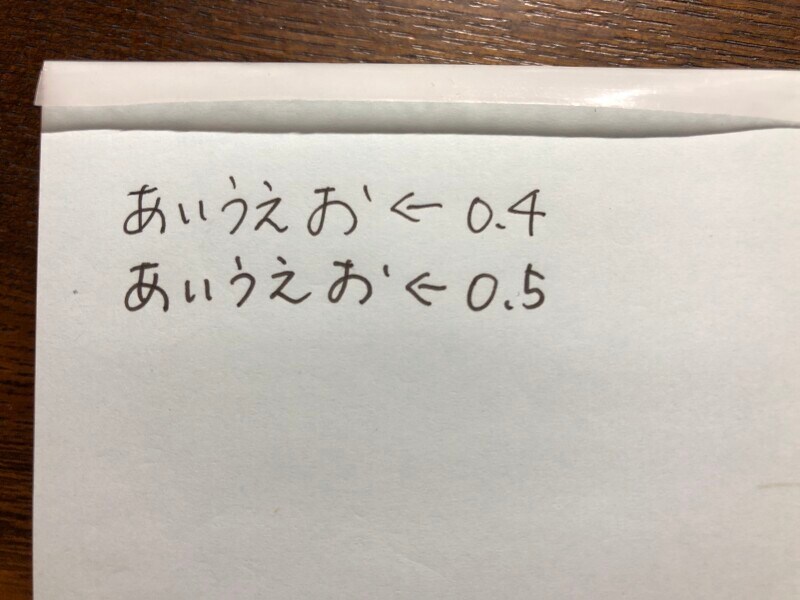 あいうえお←0.4
あいうえお←0.5